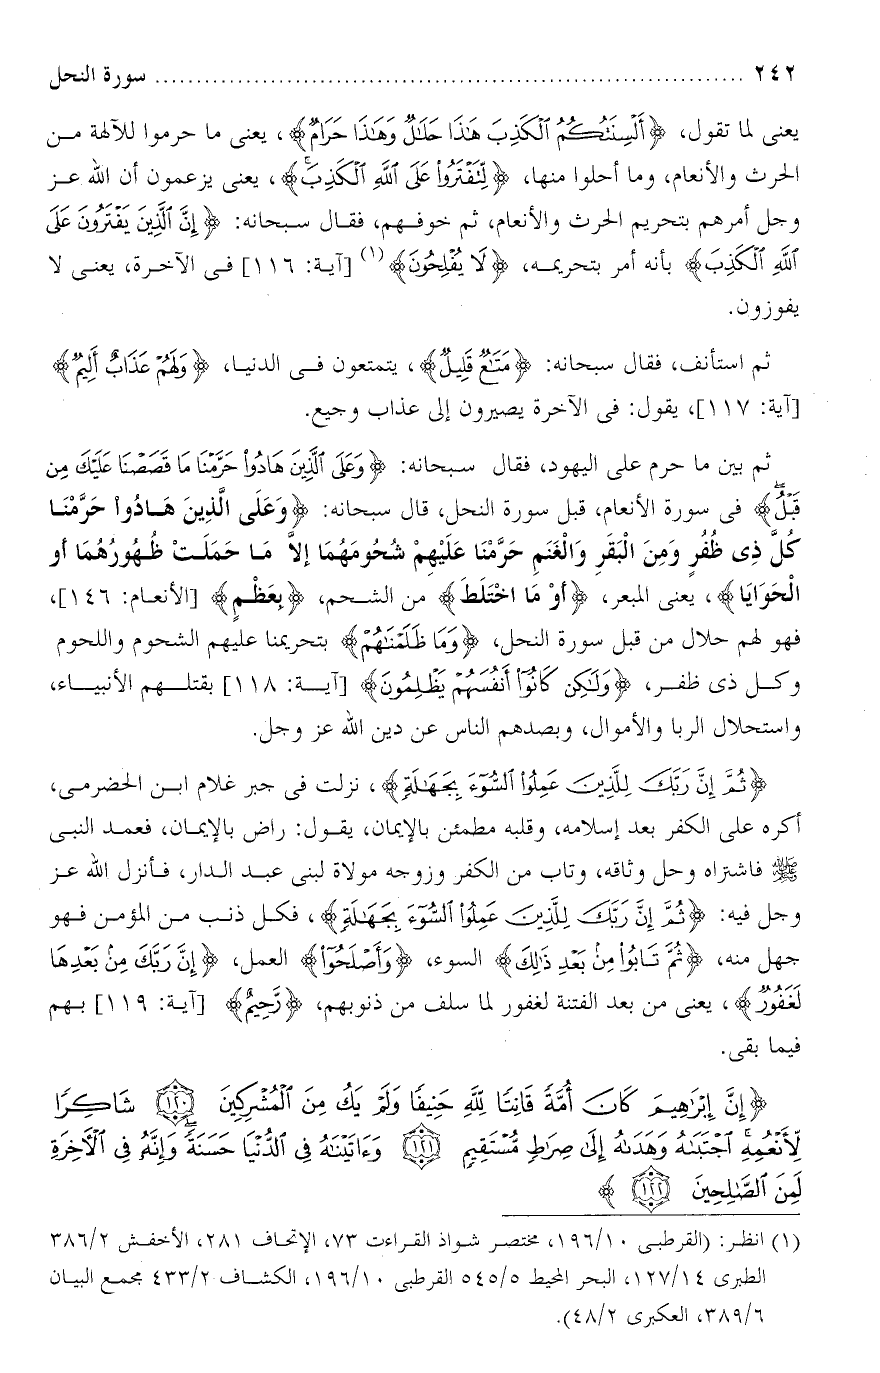 ٢٤٢ ........................................................................ سورة النحل
يعنى لما تقول، ﴿أَلْسِنَتُكُمُ ٱلْكَذِبَ هَٰذَا حَلَٰلٌ وَهَٰذَا حَرَامٌ﴾، يعنى ما حرموا للآلهة من
الحرث والأنعام، وما أحلوا منها، ﴿لِّتَفْتَرُوا۟ عَلَى ٱللَّهِ ٱلْكَذِبَ﴾، يعنى يزعمون أن الله عز
وجل أمرهم بتحريم الحرث والأنعام، ثم خوفهم، فقال سبحانه: ﴿إِنَّ ٱلَّذِينَ يَفْتَرُونَ عَلَى
ٱللَّهِ ٱلْكَذِبَ﴾ بأنه أمر بتحريمه، ﴿لَا يُفْلِحُونَ﴾(١) [آية: ١١٦] فى الآخرة، يعنى لا
يفوزون.
ثم استأنف، فقال سبحانه: ﴿مَتَٰعٌ قَلِيلٌ﴾، يتمتعون فى الدنيا، ﴿وَلَهُمْ عَذَابٌ أَلِيمٌ﴾
[آية: ١١٧]، يقول: فى الآخرة يصيرون إلى عذاب وجيع.
ثم بين ما حرم على اليهود، فقال سبحانه: ﴿وَعَلَى ٱلَّذِينَ هَادُوا۟ حَرَّمْنَا مَا قَصَصْنَا عَلَيْكَ مِن
قَبْلُ﴾ فى سورة الأنعام، قبل سورة النحل، قال سبحانه: ﴿وَعَلَى الَّذِينَ هَادُواْ حَرَّمْنَا
كُلَّ ذِى ظُفُرٍ وَمِنَ الْبَقَرِ وَالْغَنَمِ حَرَّمْنَا عَلَيْهِمْ شُحُومَهُمَا إِلاَّ مَا حَمَلَتْ ظُهُورُهُمَا أو
الْحَوَايَا﴾، يعنى المبعر، ﴿أَوْ مَا اخْتَلَطَ﴾ من الشحم، ﴿بِعَظْمٍ﴾ [الأنعام: ١٤٦]،
فهو لهم حلال من قبل سورة النحل، ﴿وَمَا ظَلَمْنَٰهُمْ﴾ بتحريمنا عليهم الشحوم واللحوم
وكل ذى ظفر، ﴿وَلَٰكِن كَانُوٓا۟ أَنفُسَهُمْ يَظْلِمُونَ﴾ [آية: ١١٨] بقتلهم الأنبياء،
واستحلال الربا والأموال، وبصدهم الناس عن دين الله عز وجل.
﴿ثُمَّ إِنَّ رَبَّكَ لِلَّذِينَ عَمِلُوا۟ ٱلسُّوٓءَ بِجَهَٰلَةٍ﴾، نزلت فى جبر غلام ابن الحضرمى،
أكره على الكفر بعد إسلامه، وقلبه مطمئن بالإيمان، يقول: راض بالإيمان، فعمد النبى
ﷺ فاشتراه وحل وثاقه، وتاب من الكفر وزوجه مولاة لبنى عبد الدار، فأنزل الله عز
وجل فيه: ﴿ثُمَّ إِنَّ رَبَّكَ لِلَّذِينَ عَمِلُوا۟ ٱلسُّوٓءَ بِجَهَٰلَةٍ﴾، فكل ذنب من المؤمن فهو
جهل منه، ﴿ثُمَّ تَابُوا۟ مِنۢ بَعْدِ ذَٰلِكَ﴾ السوء، ﴿وَأَصْلَحُوٓا۟﴾ العمل، ﴿إِنَّ رَبَّكَ مِنۢ بَعْدِهَا
لَغَفُورٌ﴾، يعنى من بعد الفتنة لغفور لما سلف من ذنوبهم، ﴿رَّحِيمٌ﴾ [آية: ١١٩] بهم
فيما بقى.
﴿إِنَّ إِبْرَٰهِيمَ كَانَ أُمَّةً قَانِتًا لِّلَّهِ حَنِيفًا وَلَمْ يَكُ مِنَ ٱلْمُشْرِكِينَ ١٢٠ شَاكِرًا
لِّأَنْعُمِهِ ٱجْتَبَىٰهُ وَهَدَىٰهُ إِلَىٰ صِرَٰطٍ مُّسْتَقِيمٍ ١٢١ وَءَاتَيْنَٰهُ فِى ٱلدُّنْيَا حَسَنَةً وَإِنَّهُۥ فِى ٱلْأَخِرَةِ
لَمِنَ ٱلصَّٰلِحِينَ ١٢٢﴾
(١) انظر: (القرطبى ١٩٦/١٠، مختصر شواذ القراءت ٧٣، الإتحاف ٢٨١، الأخفش ٣٨٦/٢
الطبرى ١٢٧/١٤، البحر المحيط ٥٤٥/٥ القرطبى ١٩٦/١٠، الكشاف ٤٣٣/٢ مجمع البيان
٣٨٩/٦، العكبرى ٤٨/٢).